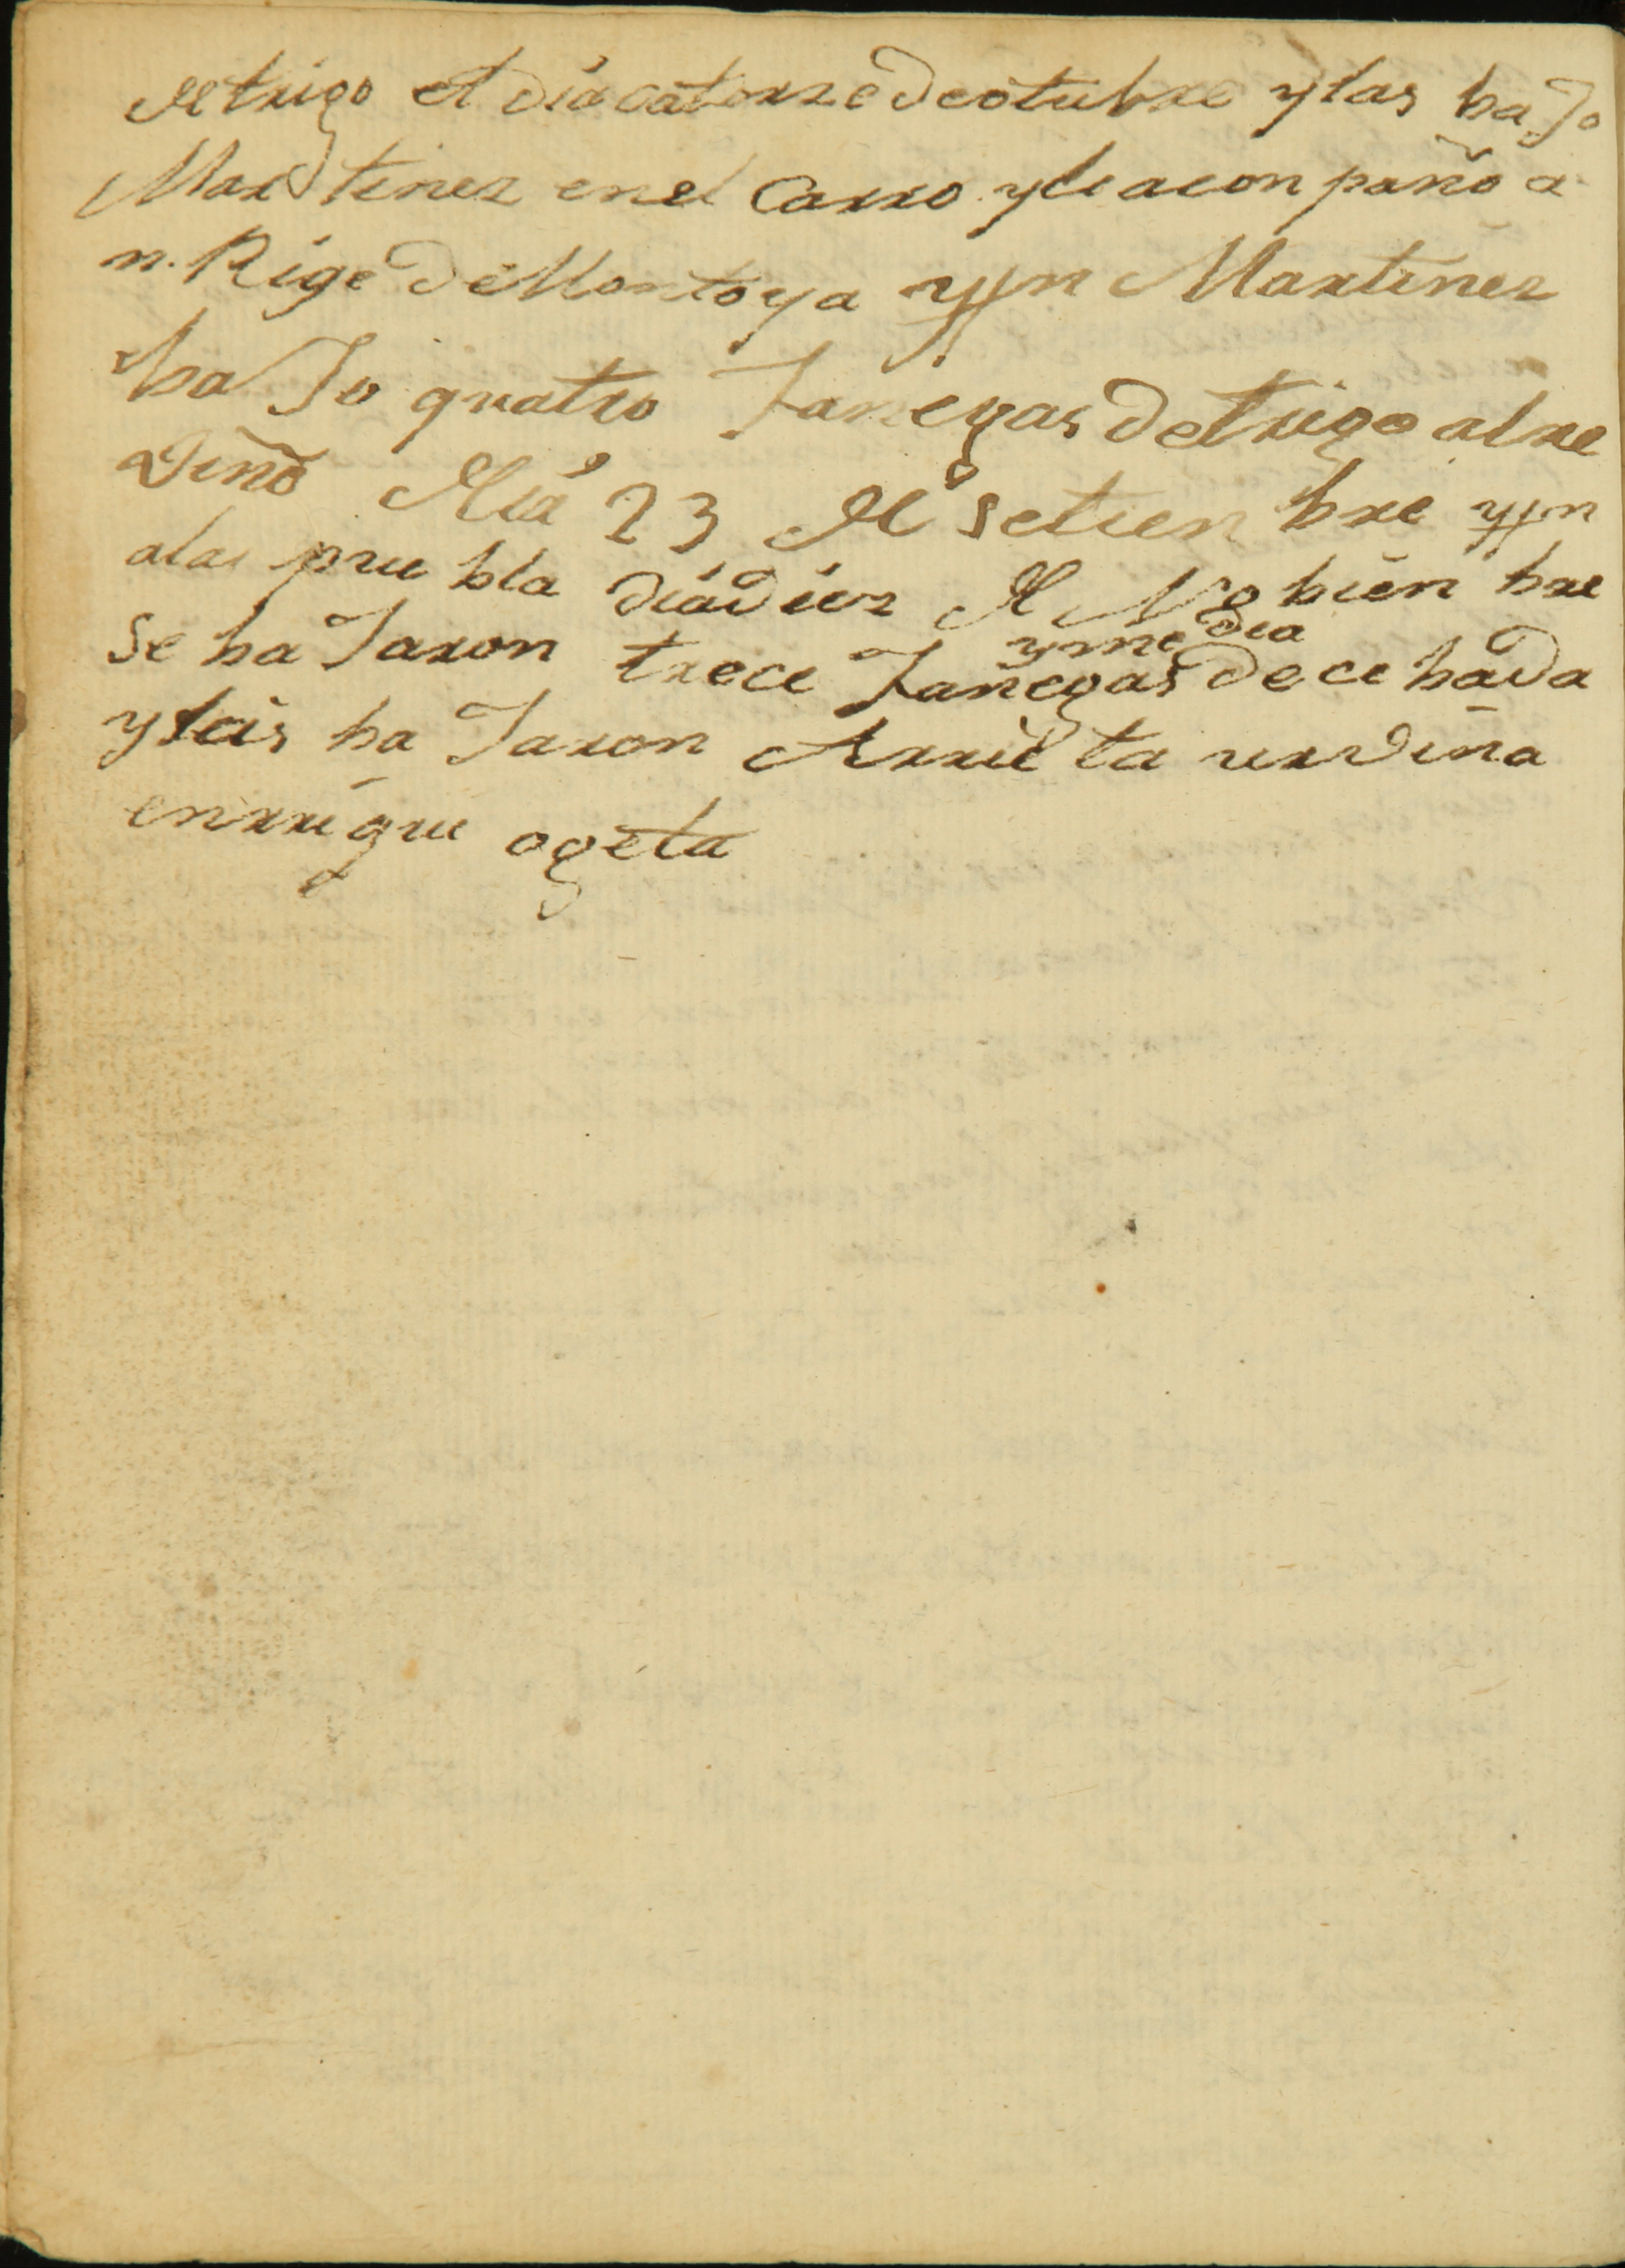 de trigo el dia catorze de otubre y las baJo
Martinez en el Carro y le acon paño a
n. Rige de Montoya y Jn Martinez
ba Jo quatro Janegas de trigo al re
dino dia 23 de setien bre y Jn
a la pue bla dia diez de No bien bre
se ba Jaron trece Janegas y me dia de ce bada
y las ba Jaron Arrie ta urdina
enrrique ogeta